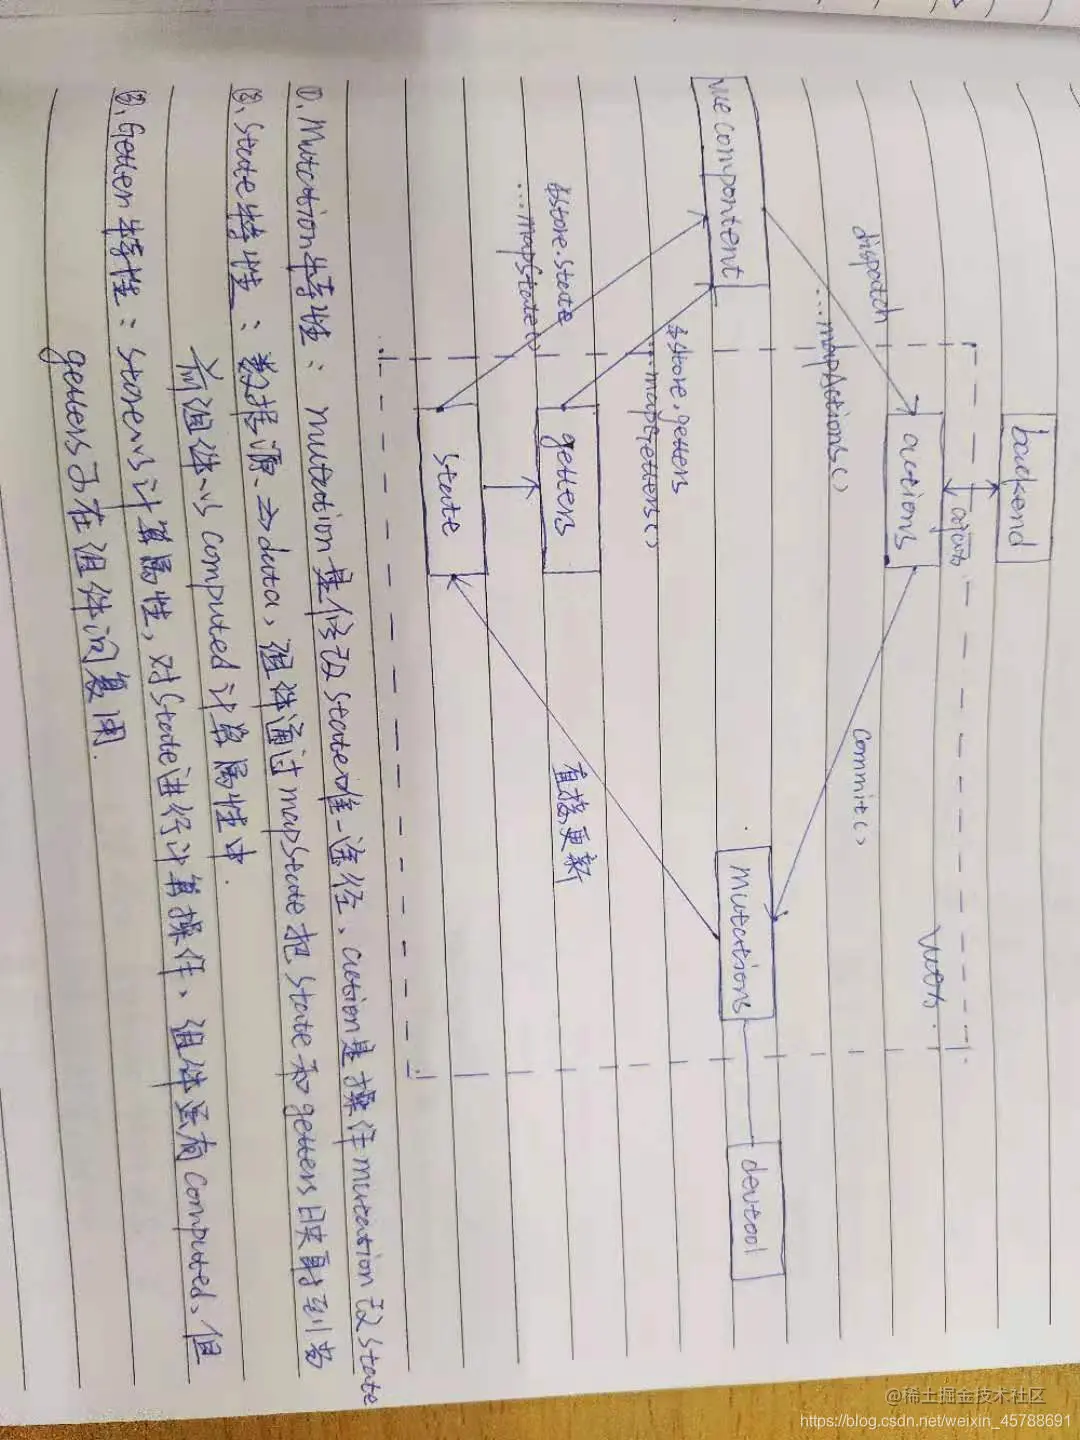 backend
actions
dispatch
...mapActions()
commit()
vuex.
vue compontent
$store.getters
...mapGetters()
$store.state
...mapState()
getters
state
直接更新
mutations
devtool
①. Mutation特性： mutation是修改state唯一途径、action是操作mutation改state
②. State特性 ： 数据源、data，组件通过mapState把state和getters映射到当
前组件的computed计算属性中.
③. Getter特性：store的计算属性，对state进行计算操作、组件虽有computed、但
getters可在组件间复用.
@稀土掘金技术社区
https://blog.csdn.net/weixin_45788691